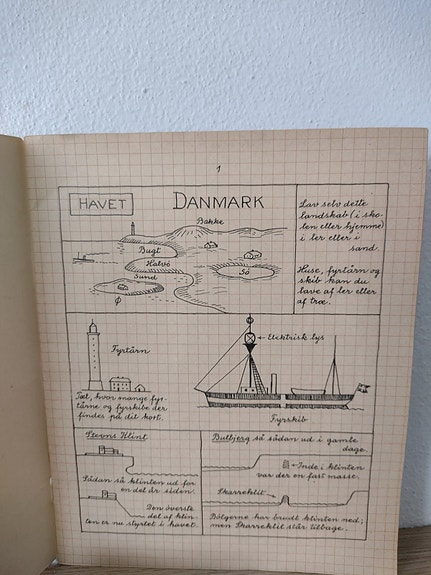 1
HAVET
DANMARK
Bakke
Bugt
Halvö
Sund
Sö
Ø
Lav selv dette
landskab (i sko-
len eller hjemme)
i ler eller i
sand.
Huse, fyrtårn og
skib kan du
lave af ler eller
af træ.
Fyrtårn
Tæl, hvor mange fyr-
tårne og fyrskibe der
findes på dit kort.
Elektrisk lys
Fyrskib
Stevns Klint
Sådan så klinten ud for
en del år siden.
Den øverste
del af klin-
ten er nu styrtet i havet.
Bulbjerg så sådan ud i gamle
dage.
Inde i klinten
var der en fast masse.
Skarreklit
Bölgerne har brudt klinten ned,
men Skarreklit står tilbage.